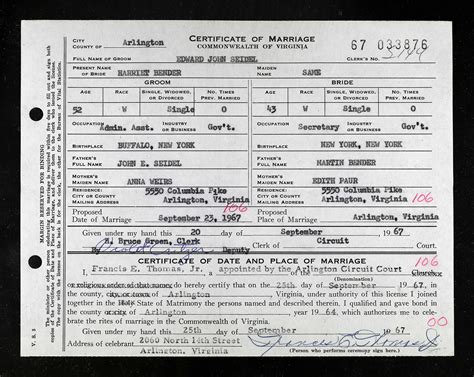 CERTIFICATE OF MARRIAGE
COMMONWEALTH OF VIRGINIA
CITY
COUNTY OF Arlington
67 033876
CLERK'S NO.
FULL NAME OF GROOM EDWARD JOHN SEIDEL
PRESENT NAME OF BRIDE HARRIET BENDER MAIDEN NAME SAME
GROOM BRIDE
AGE RACE SINGLE, WIDOWED, OR DIVORCED NO. TIMES PREV. MARRIED AGE RACE SINGLE, WIDOWED, OR DIVORCED NO. TIMES PREV. MARRIED
52 W Single 0 43 W Single 0
OCCUPATION Admin. Asst. INDUSTRY OR BUSINESS Gov't. OCCUPATION Secretary INDUSTRY OR BUSINESS Gov't.
BIRTHPLACE BUFFALO, NEW YORK BIRTHPLACE NEW YORK, NEW YORK
FATHER'S FULL NAME JOHN E. SEIDEL FATHER'S FULL NAME MARTIN BENDER
MOTHER'S MAIDEN NAME ANNA WEIRS MOTHER'S MAIDEN NAME EDITH PAUR
CITY OR COUNTY MAILING ADDRESS 5550 Columbia Pike Arlington, Virginia 106 CITY OR COUNTY MAILING ADDRESS 5550 Columbia Pike Arlington, Virginia 106
Proposed Date of Marriage September 23, 1967 Proposed Place of Marriage Arlington, Virginia
Given under my hand this 20 day of September 1967
H. Bruce Green, Clerk Clerk of Circuit Court
Deputy
CERTIFICATE OF DATE AND PLACE OF MARRIAGE 106
I Francis E. Thomas, Jr. a appointed by the Arlington Circuit Court
or religious order of that name) do hereby certify that on the 25th day of September 1967, in
the county, of Arlington, Virginia, under authority of this license I joined
together in the State of Matrimony the persons named and described. I qualified and gave bond in
the county, of Arlington year 1964, which authorizes me to cele-
brate the rites of marriage in the Commonwealth of Virginia. 00
Given under my hand this 25th day of September 1967
Address of celebrant 2060 North 14th Street
Arlington, Virginia
(Person who performs ceremony sign here.)
MARGIN RESERVED FOR BINDING
V. S. 1